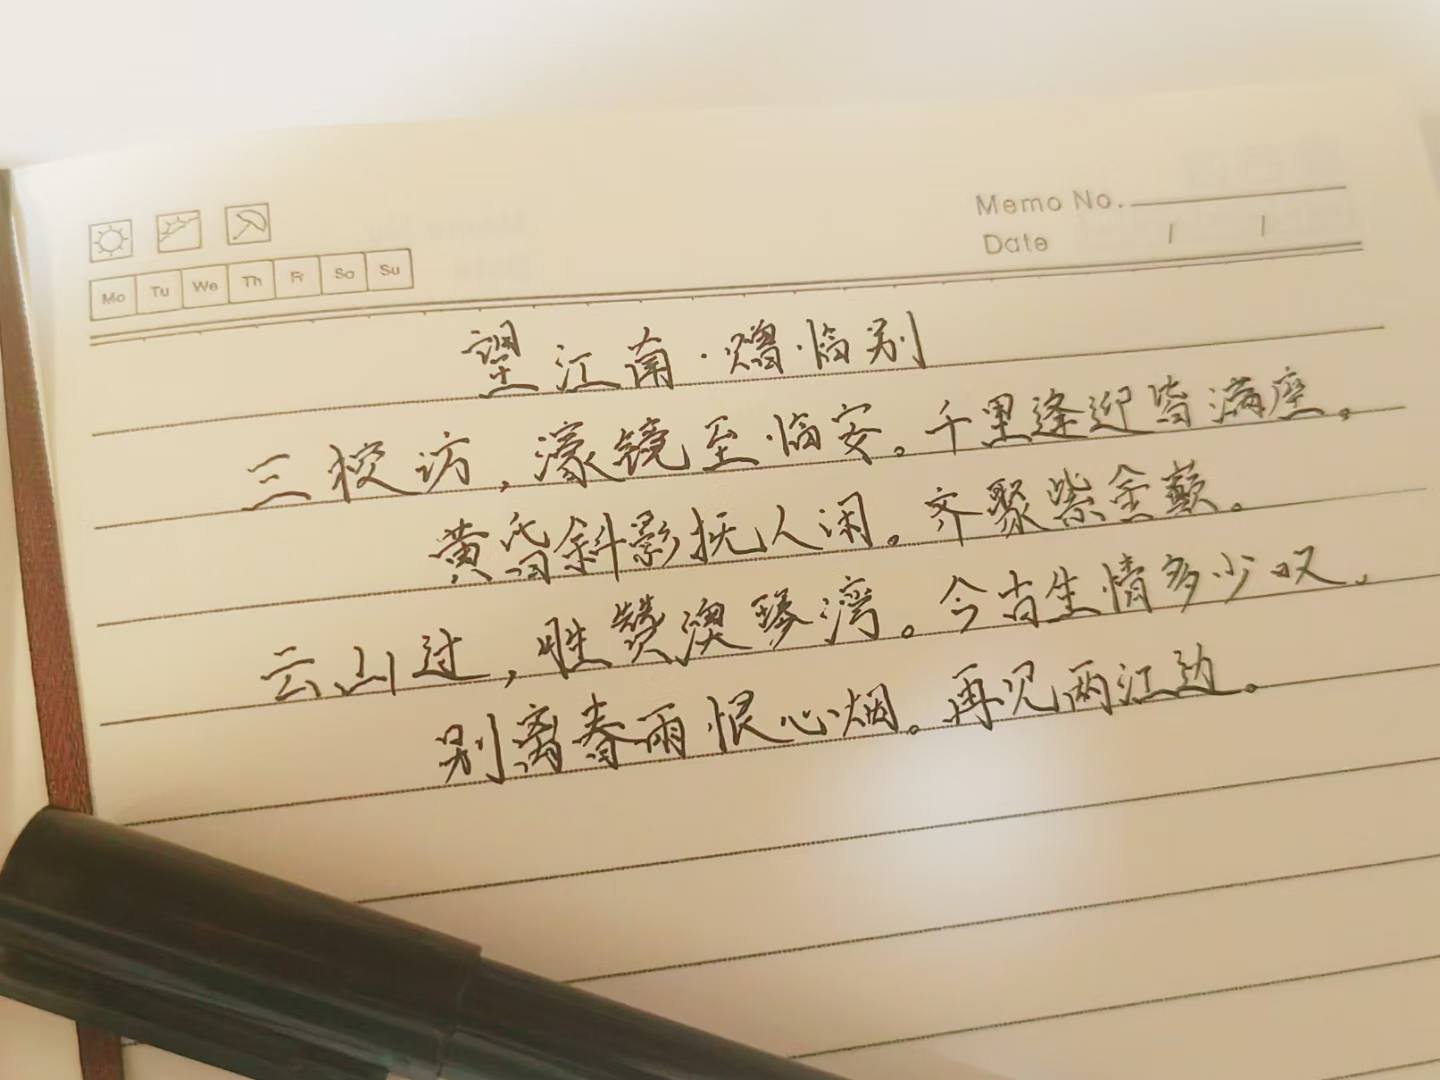 Memo No.
Date / /
Mo Tu We Th Fr Sa Su
望江南·赠·临别
三校访，濠镜至临安。千里逢迎皆满座。
黄昏斜影抚人闲。齐聚紫金巅。
云山过，胜赞澳琴湾。今古生情多少叹，
别离春雨恨心烟。再见两江边。